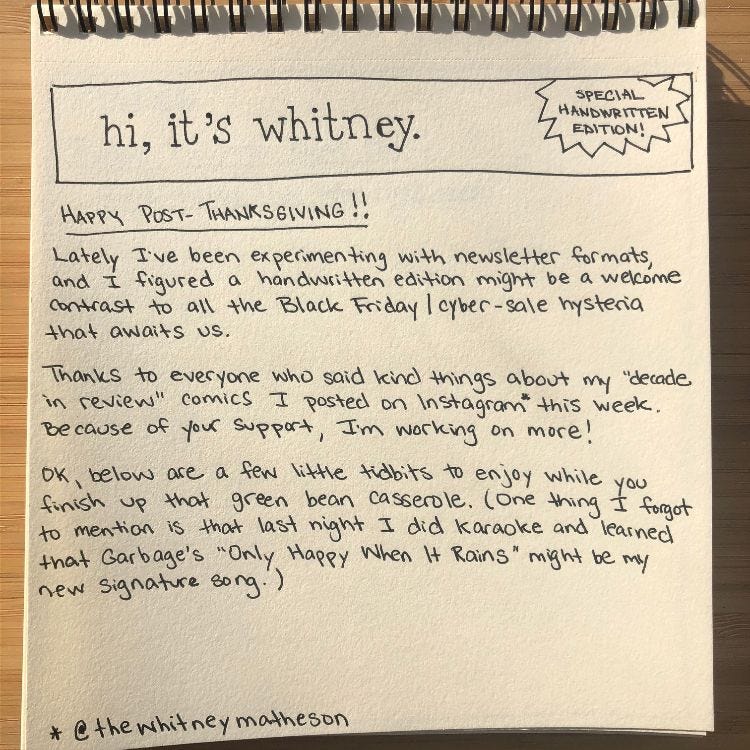 hi, it's whitney.
SPECIAL
HANDWRITTEN
EDITION!
HAPPY POST-THANKSGIVING!!
Lately I've been experimenting with newsletter formats,
and I figured a handwritten edition might be a welcome
contrast to all the Black Friday/cyber-sale hysteria
that awaits us.
Thanks to everyone who said kind things about my "decade
in review" comics I posted on Instagram* this week.
Because of your support, I'm working on more!
OK, below are a few little tidbits to enjoy while you
finish up that green bean casserole. (One thing I forgot
to mention is that last night I did karaoke and learned
that Garbage's "Only Happy When It Rains" might be my
new signature song.)
* @thewhitneymatheson